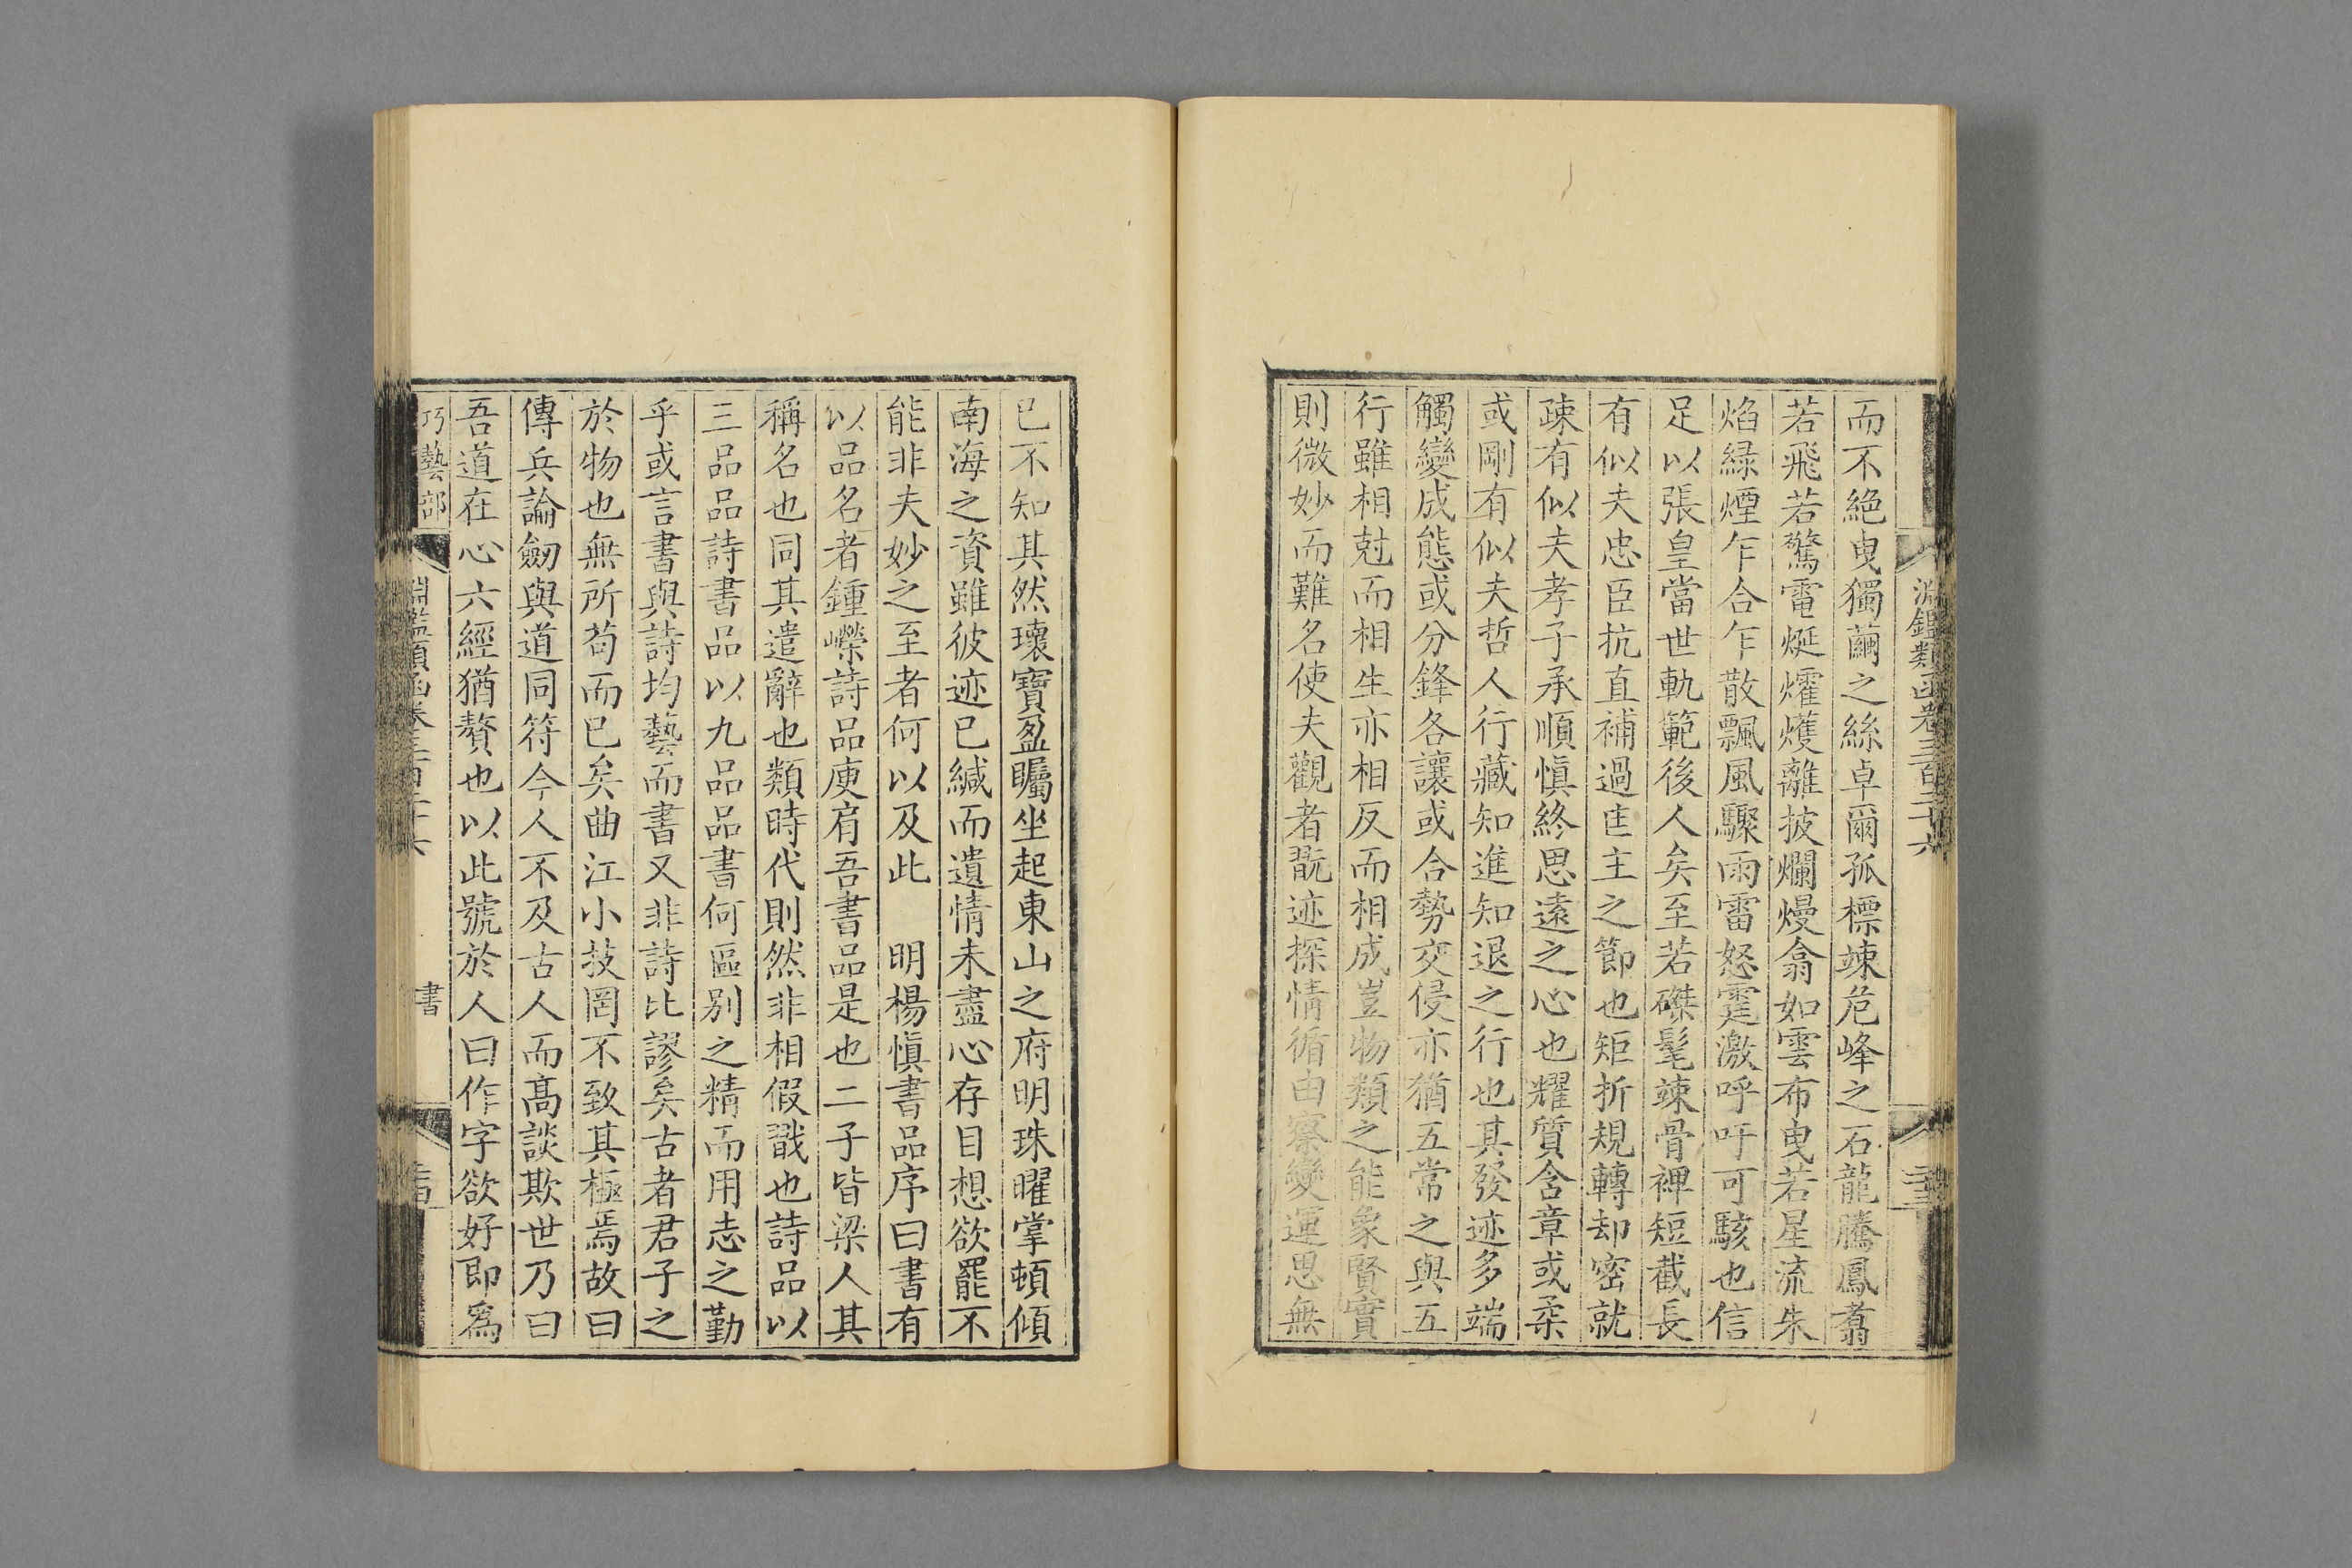 淵鑑類函卷三百二十六
而不絕曳獨繭之絲卓爾孤標竦危峰之石龍騰鳳翥
若飛若驚電烻爠爡離披爛熳翕如雲布曳若星流朱
焰綠煙乍合乍散飄風驟雨雷怒霆激呼吁可駭也信
足以張皇當世軌範後人矣至若磔髦竦骨裨短截長
有似夫忠臣抗直補過匡主之節也矩折規轉却密就
疎有似夫孝子承順愼終思遠之心也耀質含章或柔
或剛有似夫哲人行藏知進知退之行也其發迹多端
觸變成態或分鋒各讓或合勢交侵亦猶五常之與五
行雖相尅而相生亦相反而相成豈物類之能象賢實
則微妙而難名使夫觀者翫迹探情循由察變運思無
已不知其然瓌寶盈矚坐起東山之府明珠曜掌頓傾
南海之資雖彼迹已緘而遺情未盡心存目想欲罷不
能非夫妙之至者何以及此　明楊愼書品序曰書有
以品名者鍾嶸詩品庾肩吾書品是也二子皆梁人其
稱名也同其遣辭也類時代則然非相假戩也詩品以
三品品詩書品以九品品書何區别之精而用志之勤
乎或言書與詩均藝而書又非詩比謬矣古者君子之
於物也無所苟而已矣曲江小技罔不致其極焉故曰
傳兵論劒與道同符今人不及古人而高談欺世乃曰
吾道在心六經猶贅也以此號於人曰作字欲好即爲
巧藝部
淵鑑類函卷三百二十六
書